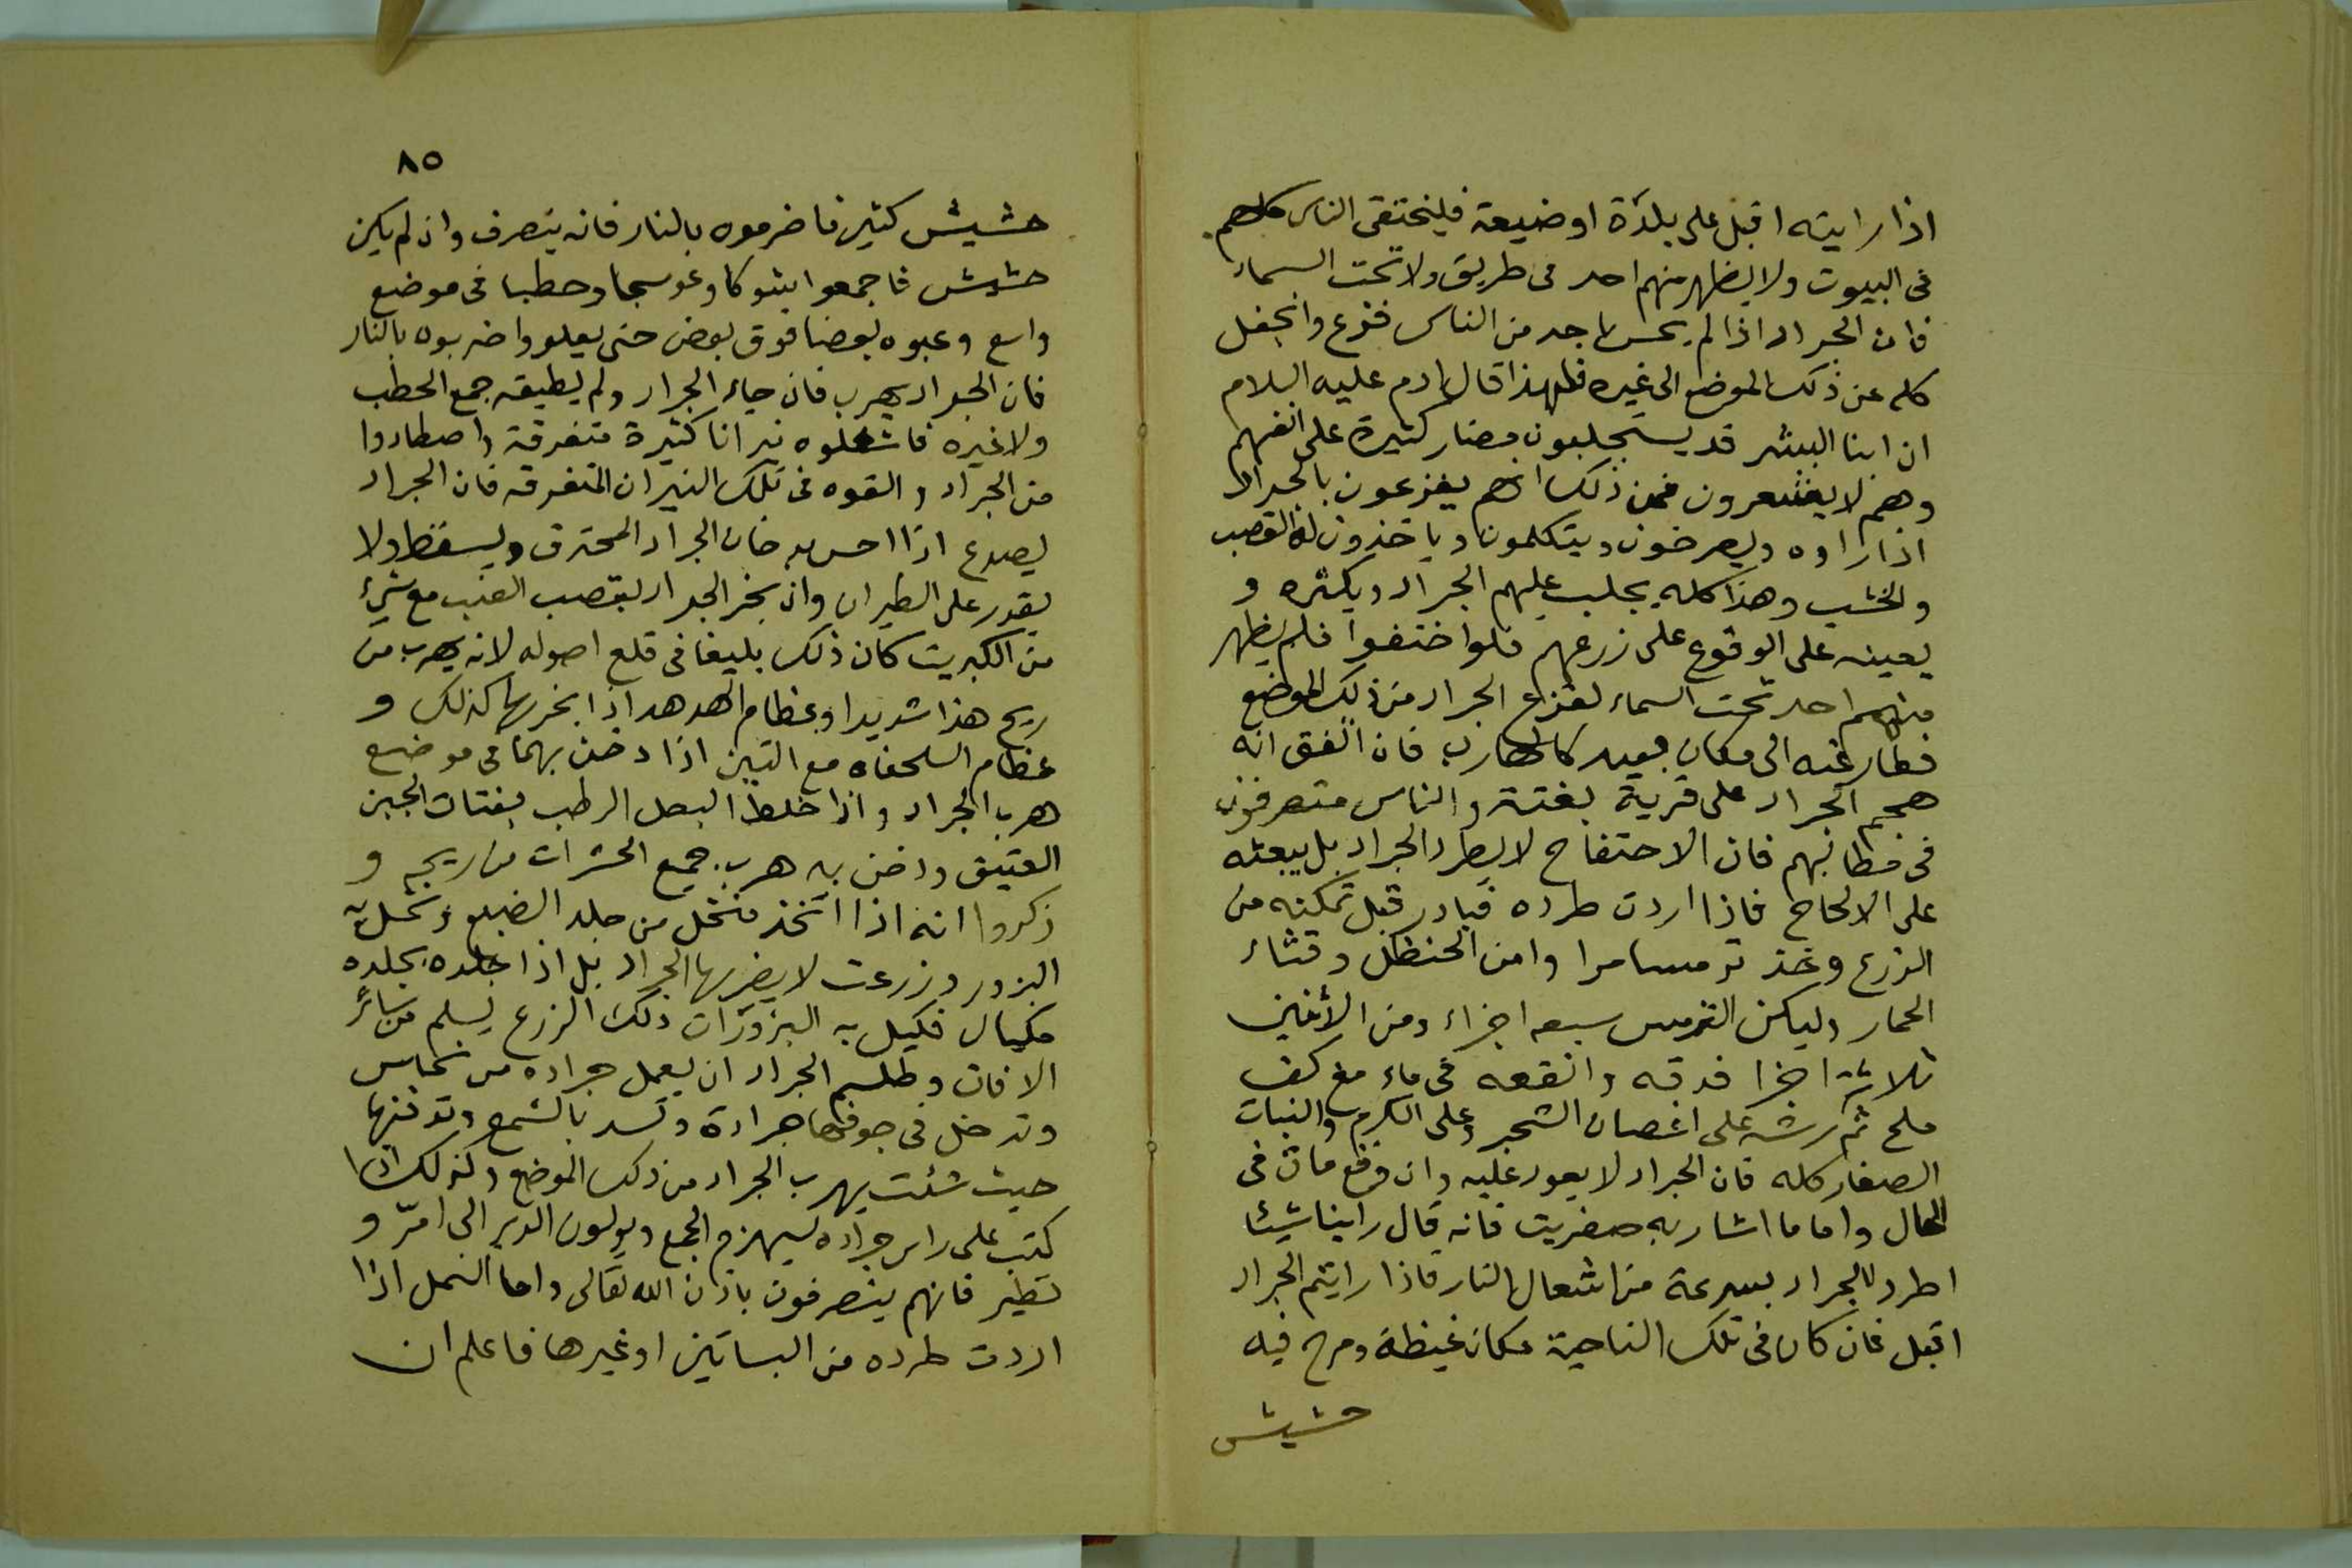 اذا رايته اقبل على بلدة او ضيعة فليختفى الناس كلهم
فى البيوت ولا يظهر منهم احد فى طريق ولا تحت السماء
فان الجراد اذا لم يحس باحد من الناس فزع وانجفل
كله عن ذلك الموضع الى غيره فلهذا قال ادم عليه السلام
ان ابنا البشر قد يستجلبون مضار كثيرة على انفسهم
وهم لا يشعرون فمن ذلك انهم يفزعون بالجراد
اذا راوه ويصرخون ويتكلمون وياخذون له القصب
والخشب وهذا كله يجلب عليهم الجراد ويكثره و
يعينه على الوقوع على زرعهم فلو اختفوا فلم يظهر
منهم احد تحت السماء لفزع الجراد من ذلك الموضع
فطار عنه الى مكان بعيد كالهارب فان اتفق انه
هجم الجراد على قرية بغتة والناس متصرفون
فى فان الاحتفاح لا يطرد الجراد بل يبعثه
على الالحاح فاذا اردت طرده فبادر قبل تمكنه من
الزرع وخذ ترمسا مرا وامن الحنظل وقثاء
الحمار وليكن الترمس سبعه اجزاء ومن الاثنين
ثلاثة اجزا فدقه وانقعه فى ماء مع كف
ملح ثم رشه على اغصان الشجر وعلى الكرم والنبات
الصغار كله فان الجراد لا يعود عليه وان وقع مات فى
الحال واما ما اشار به صغريت فانه قال راينا شيئا
اطرد للجراد بسرعة من اشعال النار فاذا رايتم الجراد
اقبل فان كان فى تلك الناحية مكان غيظة ومرج فيه
حشيش
٨٥
حشيش كثير فاضرموه بالنار فانه ينصرف وان لم يكن
حشيش فاجمعوا شوكا وعوسجا وحطبا فى موضع
واسع وعبوه بعضا فوق بعض حتى يعلو واضربوه بالنار
فان الجراد يهرب فان جاء الجراد ولم يطيقه جمع الحطب
ولا غيره فاشعلوه نيرانا كثيرة متفرقة واصطادوا
من الجراد والقوه فى تلك النيران المتفرقه فان الجراد
يصدع اذا احس به خان الجراد المحترق ويسقط ولا
يقدر على الطيران وان بخر الجراد بقصب العنب مع شيء
من الكبريت كان ذلك بليغا فى قلع اصوله لانه يهرب من
ريح هذا شديدا وعظام الهدهد اذا بخر بها كذلك و
عظام السلحفاه مع التبن اذا دخن بهما فى موضع
هرب الجراد واذا خلط البصل الرطب بفتات الجبن
العتيق ودخن به هرب جميع الحشرات من ريحه و
ذكروا انه اذا اتخذ منخل من جلد الضبع ونخل به
البزور وزرعت لا يضر بها الجراد بل اذا جلده بجلده
مكيال فكيل به البزوزات ذلك الزرع يسلم من سائر
الافات وطلسم الجراد ان يعمل جراده من نحاس
وتدخل فى جوفها جرادة وتسد بالشمع وتدفنها
حيث شئت يهرب الجراد من ذلك الموضع وكذلك اذا
كتب على راس جراده ليهزم الجمع ويولون الدبر الى امرّ و
تطير فانهم ينصرفون باذن الله تعالى واما النمل اذا
اردت طرده من البساتين او غيرها فاعلم ان